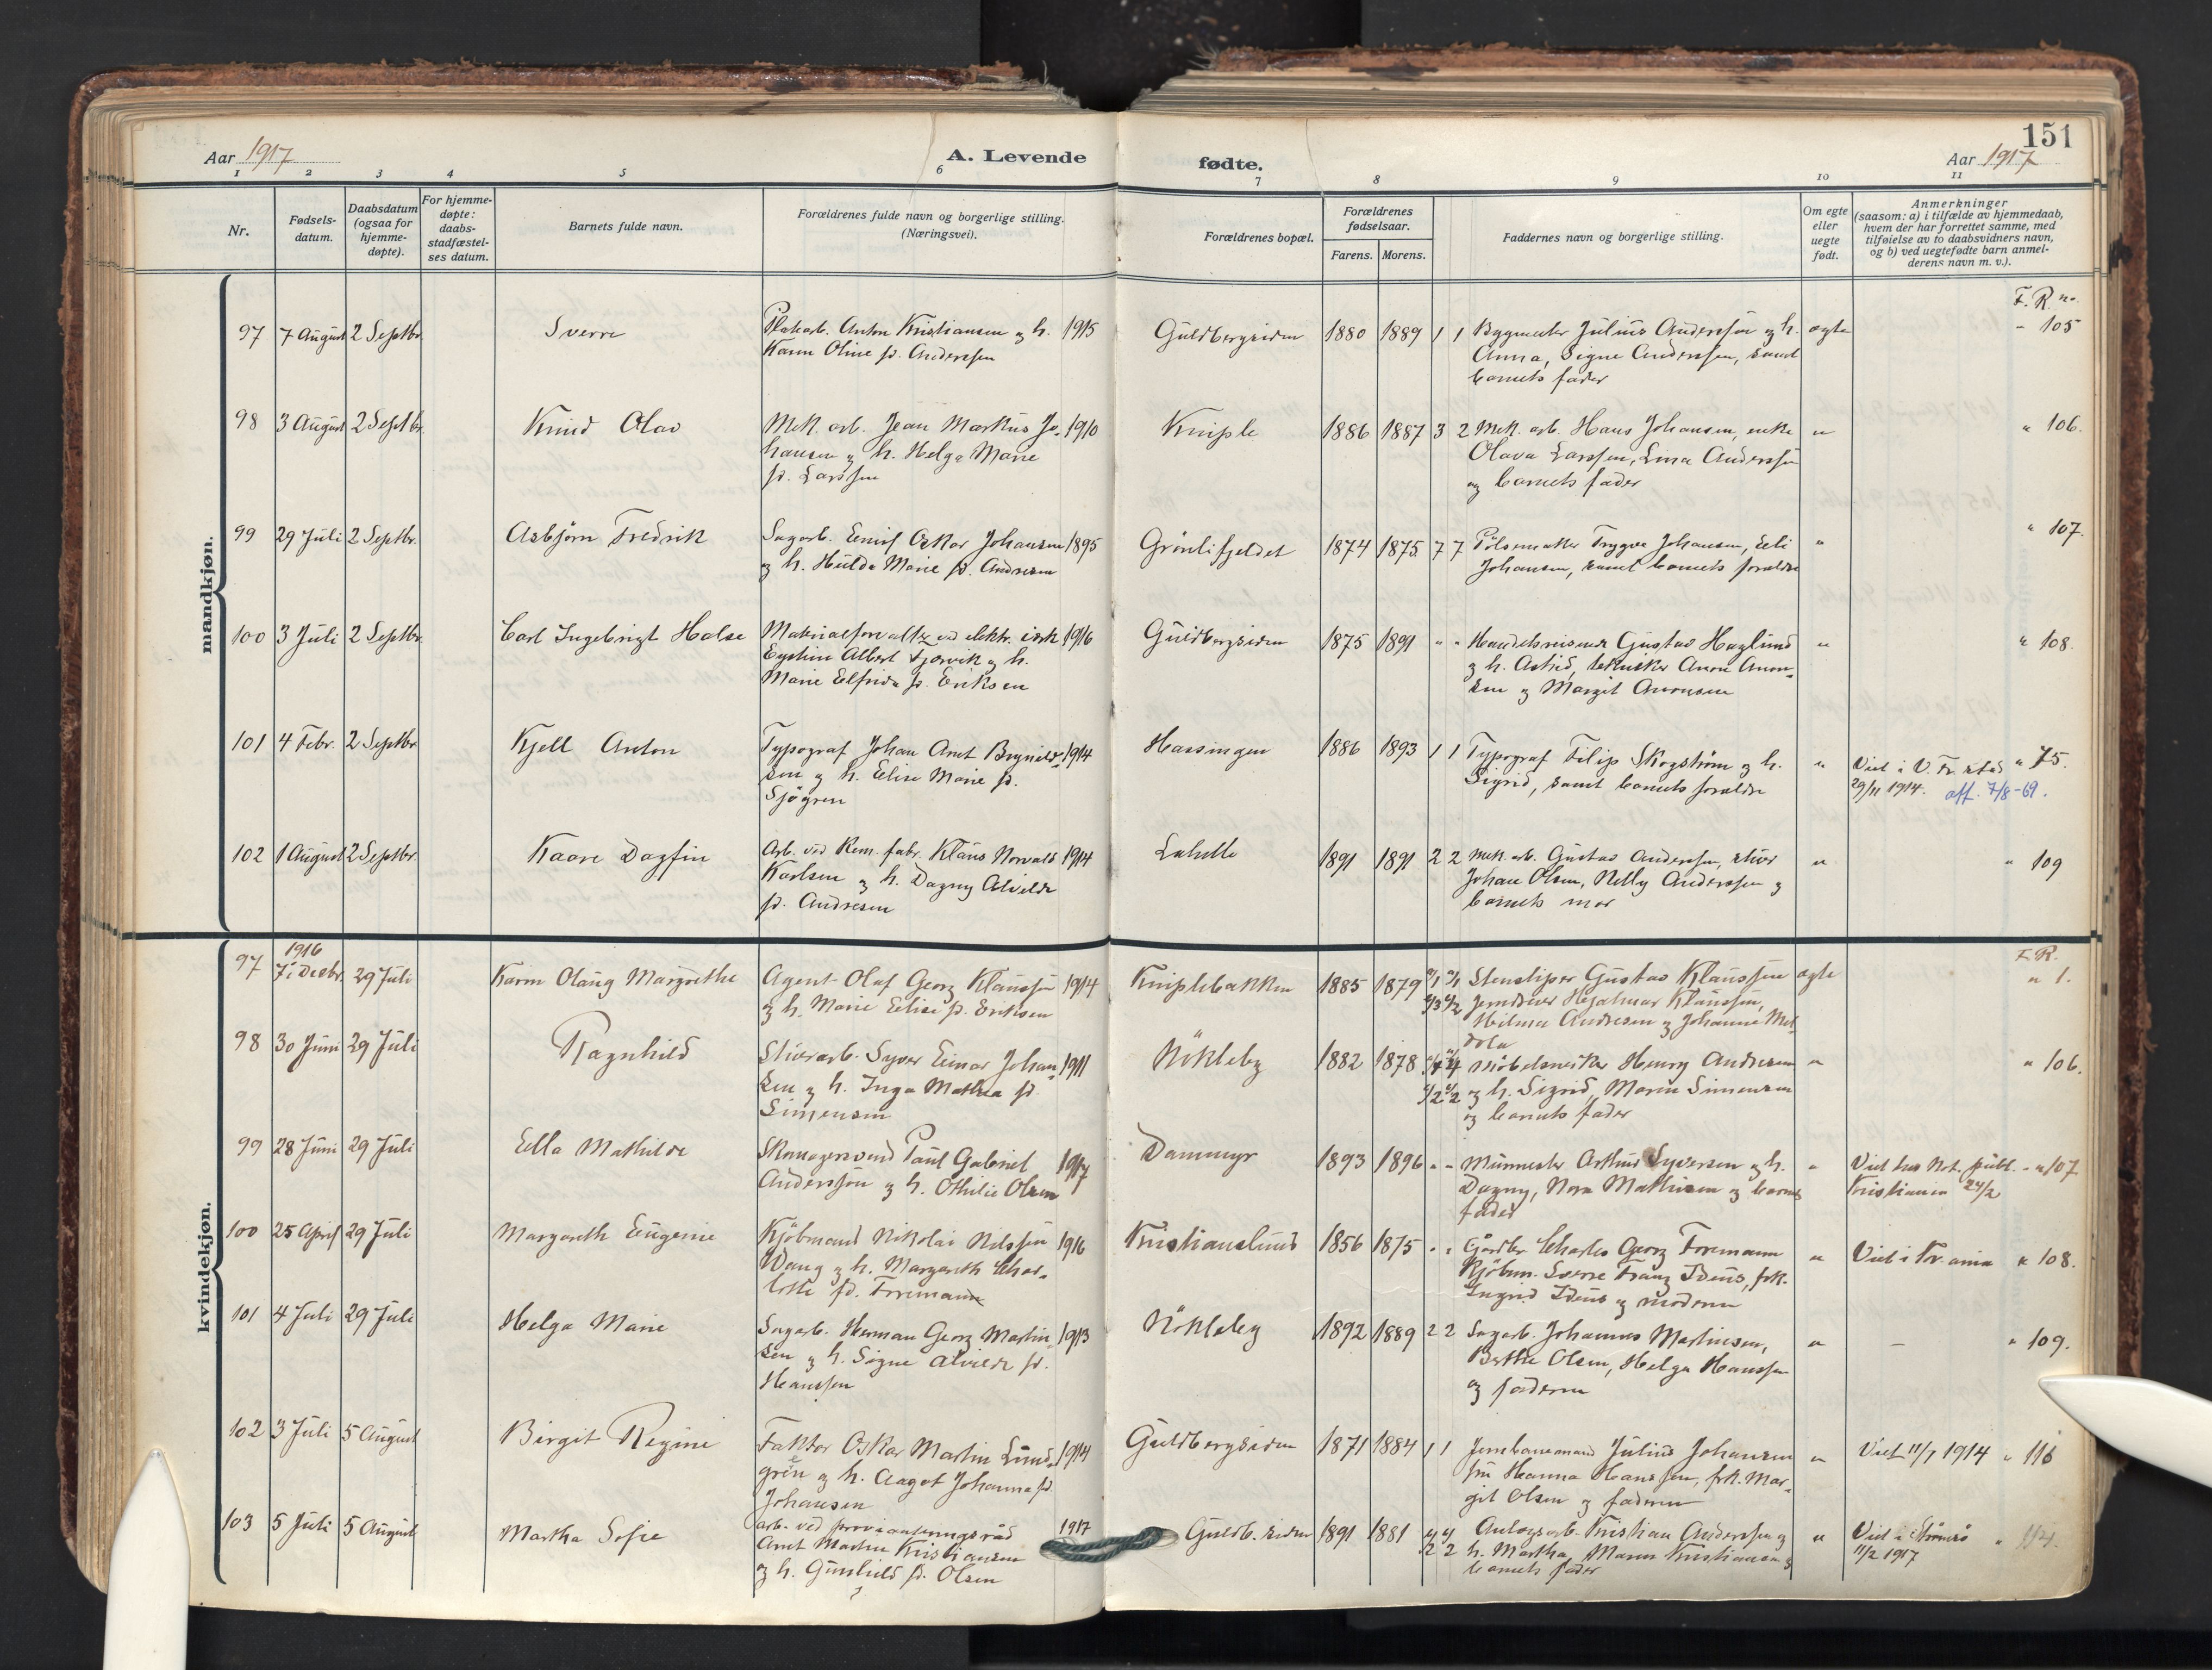 Aar 1917
A. Levende
fødte.
Aar 1917
151
1 2 3 4 5 6 7 8 9 10 11
Nr.
Fødsels-
datum.
Daabsdatum
(ogsaa for
hjemme-
døpte).
For hjemme-
døpte:
daabs-
stadfæstel-
ses datum.
Barnets fulde navn.
Forældrenes fulde navn og borgerlige stilling.
(Næringsvei).
Forældrenes bopæl.
Forældrenes
fødselsaar.
Farens. Morens.
Faddernes navn og borgerlige stilling.
Om egte
eller
uegte
født.
Anmerkninger
(saasom: a) i tilfælde av hjemmedaab,
hvem der har forrettet samme, med
tilføielse av to daabsvidners navn,
og b) ved uegtefødte barn anmel-
derens navn m. v.).
mandkjøn.
F. R no.
97 7 August 2 Septbr. Sverre Platearb. Anton Kristiansen og h. 1915 Guldbergsiden 1880 1889 1 1 Bygmester Julius Anderssen og h. ægte " 105
Karen Oline fd. Anderssen Anna, Signe Anderssen, samt
barnets fader
98 3 August 2 Septbr. Knud Olav Mek. arb. Jean Markus Jo- 1910 Kniple 1886 1887 3 2 Mek. arb. Hans Johansen, enke " " 106.
hansen og h. Helga Marie Olava Larssen, Lina Anderssen
fd. Larssen og barnets fader
99 29 Juli 2 Septbr. Asbjørn Fredrik Sagarb. Emil Oskar Johansen 1895 Grønlifjeldet 1874 1875 7 7 Pølsemaker Trygve Johansen, Elli " " 107.
og h. Hulda Marie fd. Andresen Johansen, samt barnets forældre
100 3 Juli 2 Septbr. Carl Ingebrigt Halse Materialforvalter ved elektr. verk 1916 Guldbergsiden 1875 1891 " " Handelsreisende Gustav Haglund " " 108.
Eystein Albert Fjørvik og h. og h. Astrid, tekniker Anon Anon-
Marie Elfrida fd. Eriksen sen og Margit Anonsen
101 4 Febr. 2 Septbr. Kjell Anton Typograf Johan Arnt Brynild- 1914 Hassingen 1886 1893 1 1 Typograf Filip Skogstrøm og h. " Viet i V. Fr.stad " 75.
sen og h. Elise Marie fd. Sigrid, samt barnets forældre 29/11 1914. att. 7/8-69.
Sjøgren
102 1 August 2 Septbr. Kaare Dagfin Arb. ved Kem. fabr. Klaus Norvald 1914 Lahelle 1891 1891 2 2 Mek. arb. Gustav Anderssen, stuer " " 109
Karlsen og h. Dagny Alvilde Johan Olsen, Nelly Anderssen og
fd. Andresen barnets mor
kvindekjøn.
1916 F. R.
97 7 Decbr. 29 Juli Karen Olaug Margrethe Agent Olaf Georg Klaussen 1914 Kniplebakken 1885 1879 Stensliper Gustav Klaussen ægte " 1.
og h. Marie Elise fd. Eriksen Jerndreier Hjalmar Klaussen,
Hilma Andresen og Johanne
98 30 Juni 29 Juli Ragnhild Stuerarb. Syver Einar Johan- 1911 Nökleby 1882 1878 Møbelsnedker Henry Andresen " " 106.
sen og h. Inga Mathea fd. og h. Sigrid, Maren Simensen
Simensen og barnets fader
99 28 Juni 29 Juli Ella Mathilde Skomagersvend Paul Gabriel 1917 Dammyr 1893 1896 " " Murmester Arthur Syversen og h. " Viet hos Not. publ. " 107
Anderssen og h. Othilie Olsen Dagny, Nora Mathisen og barnets Kristiania 24/2
fader
100 25 April 29 Juli Margareth Eugenie Kjöbmand Nikolai Nilssen 1916 Kristianslund 1856 1875 " " Gårdbr. Charles Georg Foremann " Viet i Kr.ania " 108.
Wang og h. Margareth Char- Kjöbm. Sverre Franz Ideus, frk.
lotte fd. Foremann Ingrid Ideus og moderen
101 4 Juli 29 Juli Helga Marie Sagarb. Herman Georg Martin- 1913 Nökleby 1892 1889 2 2 Sagarb. Johannes Martinsen, " – " 109.
sen og h. Signe Alvilde fd. Berthe Olsen, Helga Hanssen
Hanssen og faderen
102 3 Juli 5 August Birgit Regine Faktor Oskar Martin Lund- 1914 Guldbergsiden 1871 1884 1 1 Jernbanemand Julius Johansen " Viet 11/7 1914 " 116
gren og h. Aagot Johanna fd. fru Hanna Hanssen, frk. Mar-
Johansen git Olsen og faderen
103 5 Juli 5 August Martha Sofie arb. ved provianteringsråd 1917 Guldb.siden 1891 1881 Anlægsarb. Kristian Anderssen og " Viet i " 114.
Arnt Martin Kristiansen h. Martha, Maren Kristiansen og 11/2 1917
og h. Gunhild fd. Olsen barnets fader